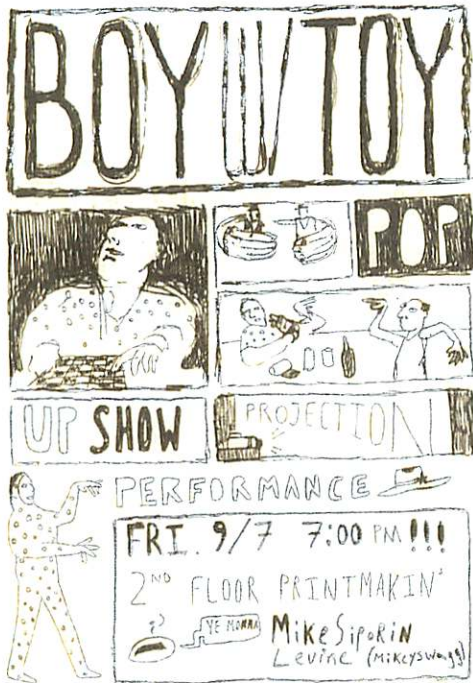 BOY W TOY
POP
UP SHOW
PROJECTION
PERFORMANCE
FRI. 9/7 7:00 PM !!!
2ND FLOOR PRINTMAKIN'
YE MONNA
MikeSiporin
Levine (Mikeyswagg)